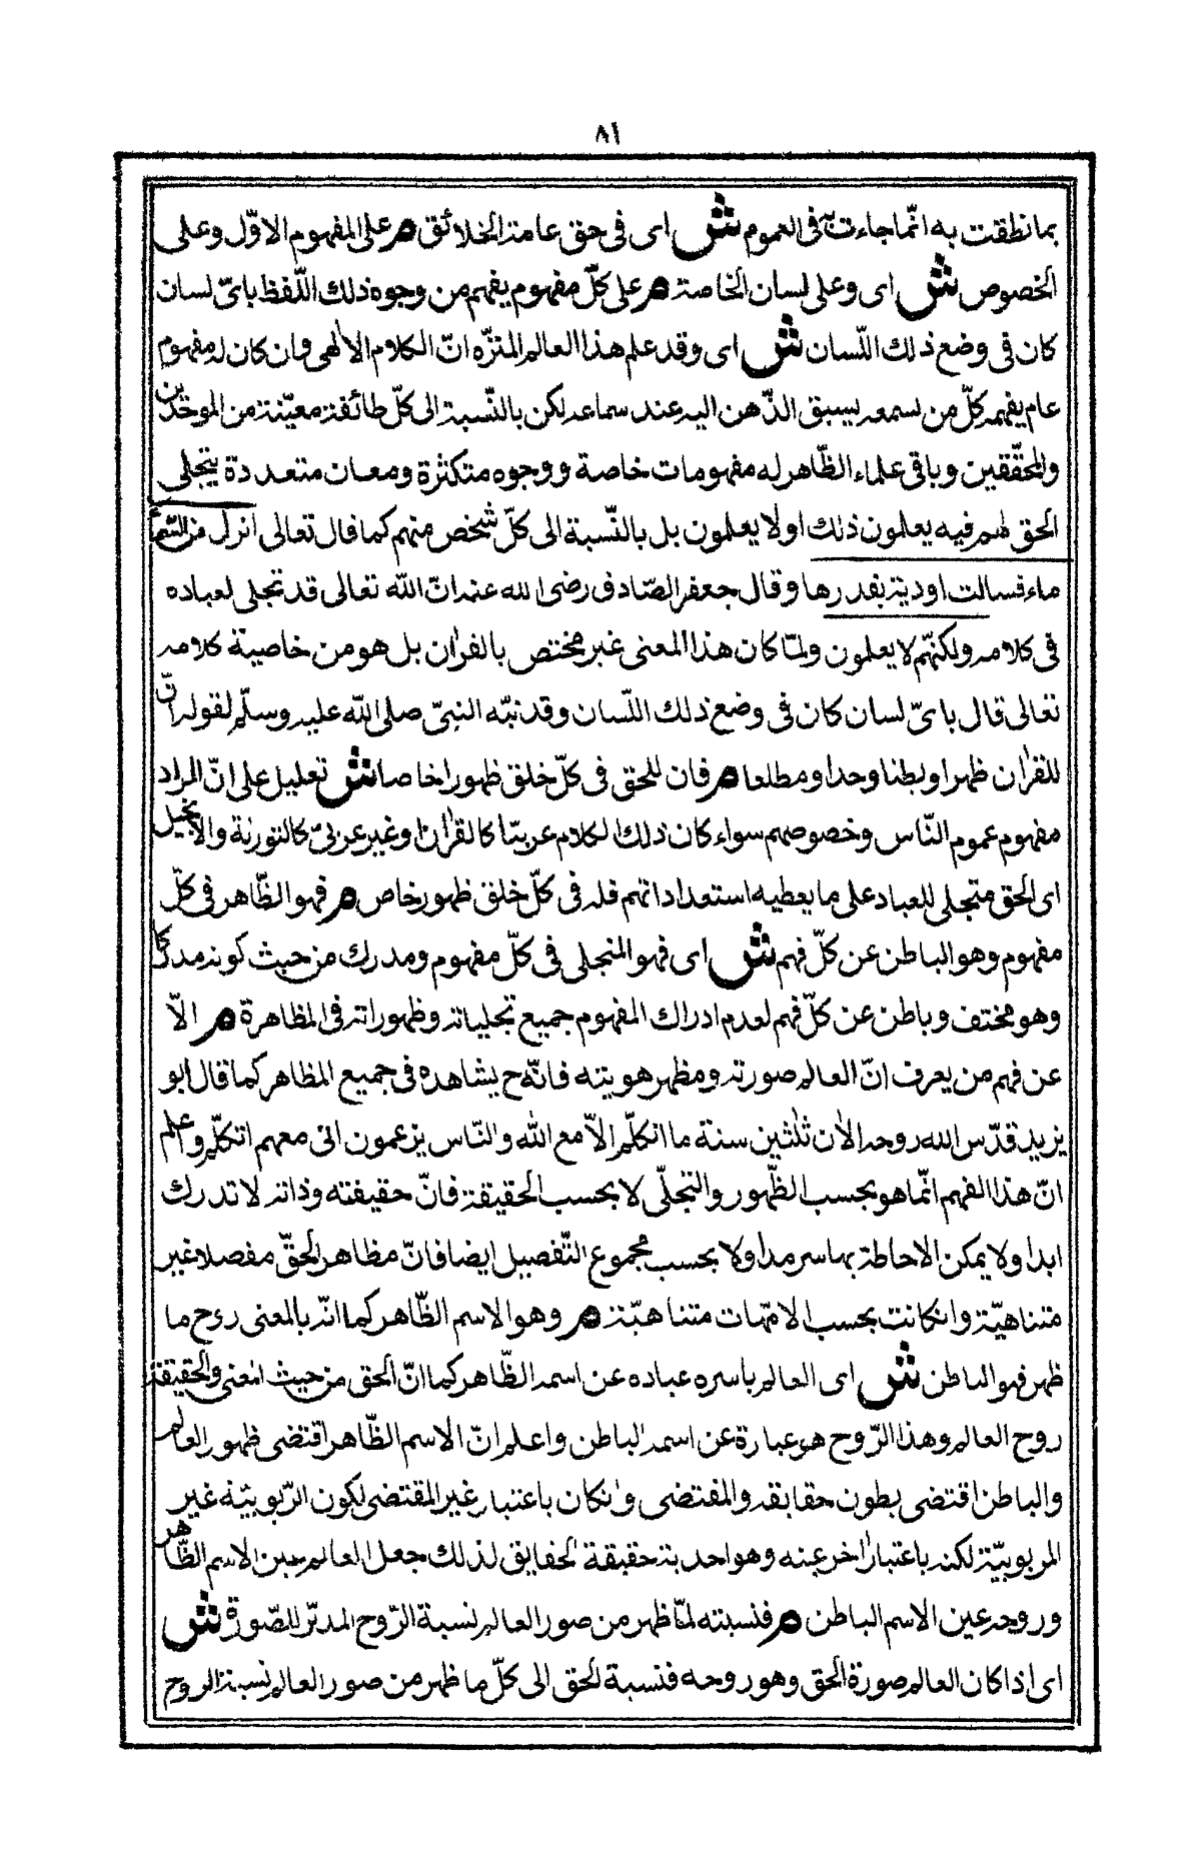 ٨١
بما نطقت به انّما جاءت به فى العموم ش اى فى حق عامة الخلائق م على المفهوم الاوّل وعلى
الخصوص ش اى وعلى لسان الخاصة م على كلّ مفهوم يفهم من وجوه ذلك اللّفظ باىّ لسان
كان فى وضع ذلك اللّسان ش اى وقد علم هذا العالم المنزّه انّ الكلام الالٰهى وان كان له مفهوم
عام يفهمه كلّ من لسمعه يسبق الذّهن اليه عند سماعه لكن بالنّسبة الى كلّ طائفة معيّنة من الموحّدين
والمحقّقين وباقى علماء الظّاهر له مفهومات خاصة ووجوه متكثرة ومعان متعددة يتجلى
الحق لهم فيه يعلمون ذلك اولا يعلمون بل بالنّسبة الى كلّ شخص منهم كما قال تعالى انزل من السّماء
ماء فسالت اودية بقدرها وقال جعفر الصّادق رضى الله عنه انّ الله تعالى قد تجلى لعباده
فى كلامه ولكنّهم لا يعلمون ولمّا كان هذا المعنى غير مختص بالقرٰان بل هو من خاصية كلامه
تعالى قال باىّ لسان كان فى وضع ذلك اللّسان وقد نبّه النبىّ صلى الله عليه وسلّم لقوله انّ
للقرٰان ظهرا وبطنا وحدا ومطلعا م فان للحق فى كلّ خلق ظهورا خاصا ش تعليل على انّ المراد
مفهوم عموم النّاس وخصوصهم سواء كان ذلك الكلام عربيّا كالقرٰان او غير عربىّ كالتورٰية والانجيل
اى الحق متجلى للعباد على ما يعطيه استعداداتهم فله فى كلّ خلق ظهور خاص م فهو الظّاهر فى كلّ
مفهوم وهو الباطن عن كلّ فهم ش اى فهو المتجلى فى كلّ مفهوم ومدرك من حيث كونه مدركا
وهو مختف وباطن عن كلّ فهم لعدم ادراك المفهوم جميع تجلياته وظهوراته فى المظاهرة م الّا
عن فهم من يعرف انّ العالم صورته ومظهر هويته فانّه ح يشاهده فى جميع المظاهر كما قال ابو
يزيد قدّس الله روحه الاٰن ثلٰثين سنة ما اتكلّم الّا مع الله والنّاس يزعمون انى معهم اتكلّم واعلم
انّ هذا الفهم انّما هو بحسب الظّهور والتّجلّى لا بحسب الحقيقة فانّ حقيقته وذاته لا تدرك
ابدا ولا يمكن الاحاطة بها سرمدا ولا بحسب مجموع التّفصيل ايضا فانّ مظاهر الحقّ مفصلا غير
متناهيّة وانكانت بحسب الامّهات متناهيّة م وهو الاسم الظّاهر كما انّه بالمعنى روح ما
ظهر فهو الباطن ش اى العالم باسره عباده عن اسمه الظّاهر كما انّ الحق من حيث المعنى والحقيقة
روح العالم وهذا الرّوح هو عبارة عن اسمه الباطن واعلم انّ الاسم الظّاهر اقتضى ظهور العالم
والباطن اقتضى بطون حقايقه والمقتضى وانكان باعتبار غير المقتضى لكون الرّبوبيّة غير
المربوبيّة لكنه باعتبار اٰخر عينه وهو احدية حقيقة الحقايق لذلك جعل العالم عين الاسم الظّاهر
وروحه عين الاسم الباطن م فنسبته لمّا ظهر من صور العالم نسبة الرّوح المدبّر للصّورة ش
اى اذا كان العالم صورة الحق وهو روحه فنسبة الحق الى كلّ ما ظهر من صور العالم نسبة الروح